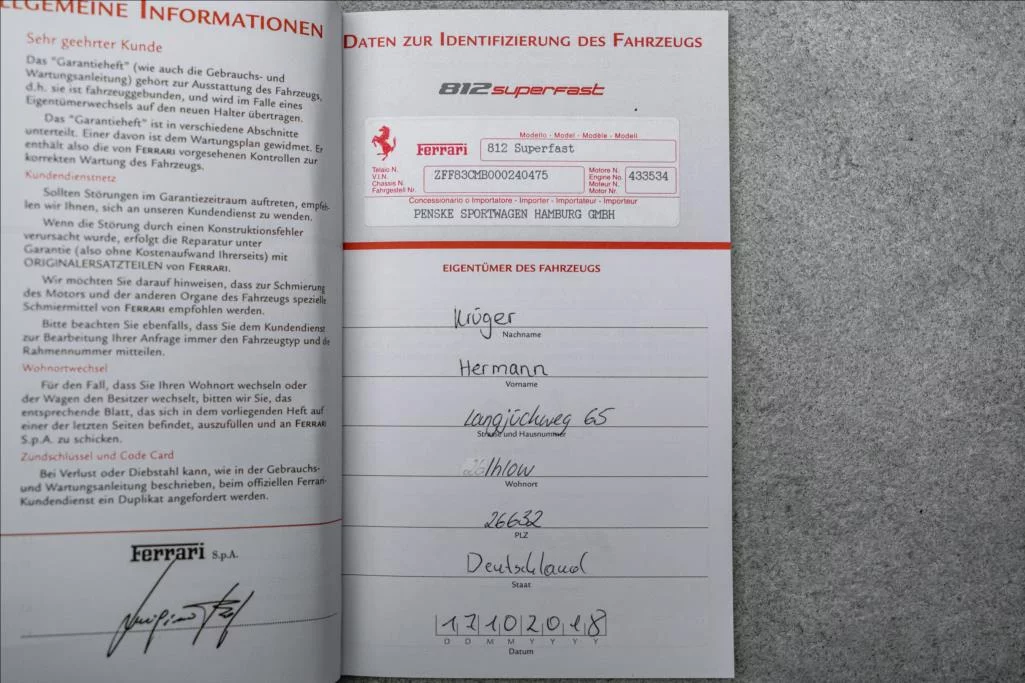 LLGEMEINE INFORMATIONEN
Sehr geehrter Kunde
Das "Garantieheft" (wie auch die Gebrauchs- und
Wartungsanleitung) gehört zur Ausstattung des Fahrzeugs,
d.h. sie ist fahrzeuggebunden, und wird im Falle eines
Eigentümerwechsels auf den neuen Halter übertragen.
Das "Garantieheft" ist in verschiedene Abschnitte
unterteilt. Einer davon ist dem Wartungsplan gewidmet. Er
enthält also die von FERRARI vorgesehenen Kontrollen zur
korrekten Wartung des Fahrzeugs.
Kundendienstnetz
Sollten Störungen im Garantiezeitraum auftreten, empfeh-
len wir Ihnen, sich an unseren Kundendienst zu wenden.
Wenn die Störung durch einen Konstruktionsfehler
verursacht wurde, erfolgt die Reparatur unter
Garantie (also ohne Kostenaufwand Ihrerseits) mit
ORIGINALERSATZTEILEN von FERRARI.
Wir möchten Sie darauf hinweisen, dass zur Schmierung
des Motors und der anderen Organe des Fahrzeugs spezielle
Schmiermittel von FERRARI empfohlen werden.
Bitte beachten Sie ebenfalls, dass Sie dem Kundendienst
zur Bearbeitung Ihrer Anfrage immer den Fahrzeugtyp und die
Rahmennummer mitteilen.
Wohnortwechsel
Für den Fall, dass Sie Ihren Wohnort wechseln oder
der Wagen den Besitzer wechselt, bitten wir Sie, das
entsprechende Blatt, das sich in dem vorliegenden Heft auf
einer der letzten Seiten befindet, auszufüllen und an FERRARI
S.p.A. zu schicken.
Zündschlüssel und Code Card
Bei Verlust oder Diebstahl kann, wie in der Gebrauchs-
und Wartungsanleitung beschrieben, beim offiziellen Ferrari-
Kundendienst ein Duplikat angefordert werden.
Ferrari S.p.A.
DATEN ZUR IDENTIFIZIERUNG DES FAHRZEUGS
812 superfast
Modello - Model - Modèle - Modell
Ferrari 812 Superfast
Telaio N.
V.I.N.
Chassis N.
Fahrgestell Nr.
ZFF83CMB000240475
Motore N.
Engine No.
Moteur N.
Motor Nr.
433534
Concessionario o Importatore - Importer - Importateur - Importeur
PENSKE SPORTWAGEN HAMBURG GMBH
EIGENTÜMER DES FAHRZEUGS
Krüger
Nachname
Hermann
Vorname
Langjückweg 65
Straße und Hausnummer
Ihlow
Wohnort
26632
PLZ
Deutschland
Staat
17102018
D D M M Y Y Y Y
Datum